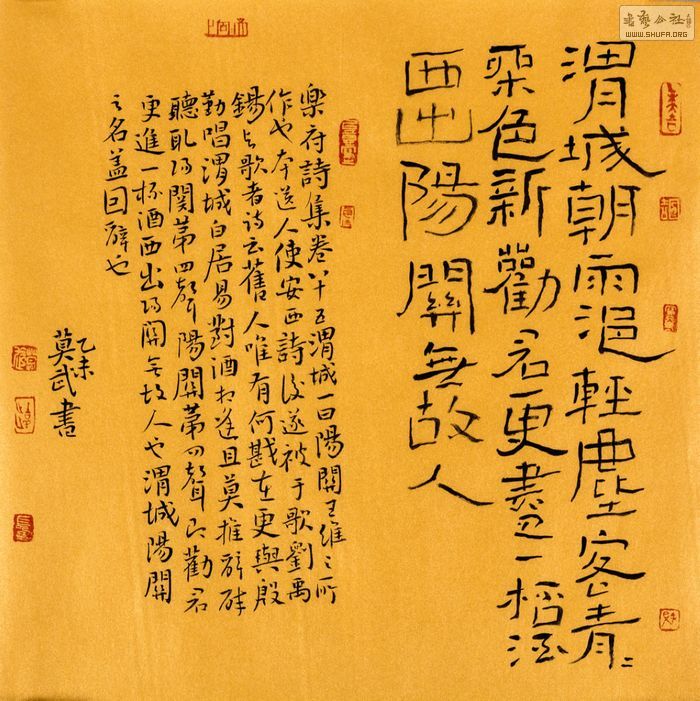 渭城朝雨浥輕塵客青二
柳色新勸君更盡一桮酒
西出陽關無故人
樂府詩集卷八十五渭城一曰陽關王維之所
作也本送人使安西詩後遂被于歌劉禹
錫与歌者詩云舊人唯有何戡在更與殷
勤唱渭城白居易對酒相逢且莫推辭醉
聽取陽關第四聲陽關第四聲即勸君
更進一杯酒西出陽關無故人也渭城陽關
之名蓋因辭也
乙未
莫武書
書藝公社
WWW.SHUFA.ORG